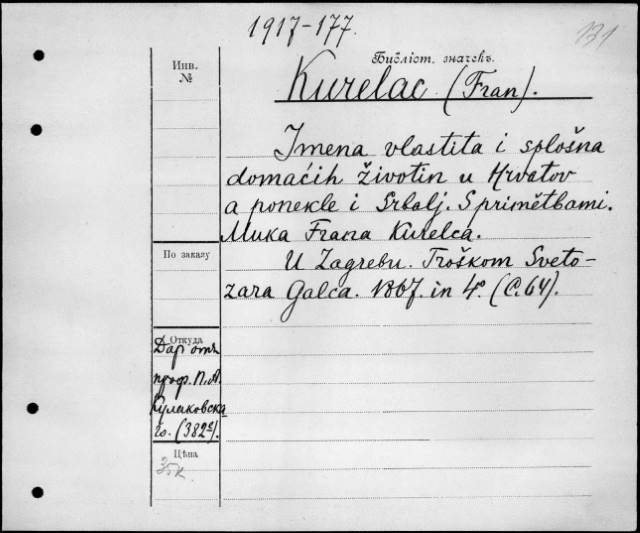 1917-177.
131
Библіот. значекъ.
Инв.
№
Kurelac (Fran).
Imena vlastita i splošna
domaćih životin u Hrvatov
a ponekle i Srbalj. S primětbami.
Muka Frana Kurelca.
U Zagrebu. Troškom Sveto-
zara Galca. 1867. in 4°. (C. 64).
По заказу
Откуда
Даръ отъ
проф. П. А.
Кулаковска
го. (382
Цѣна